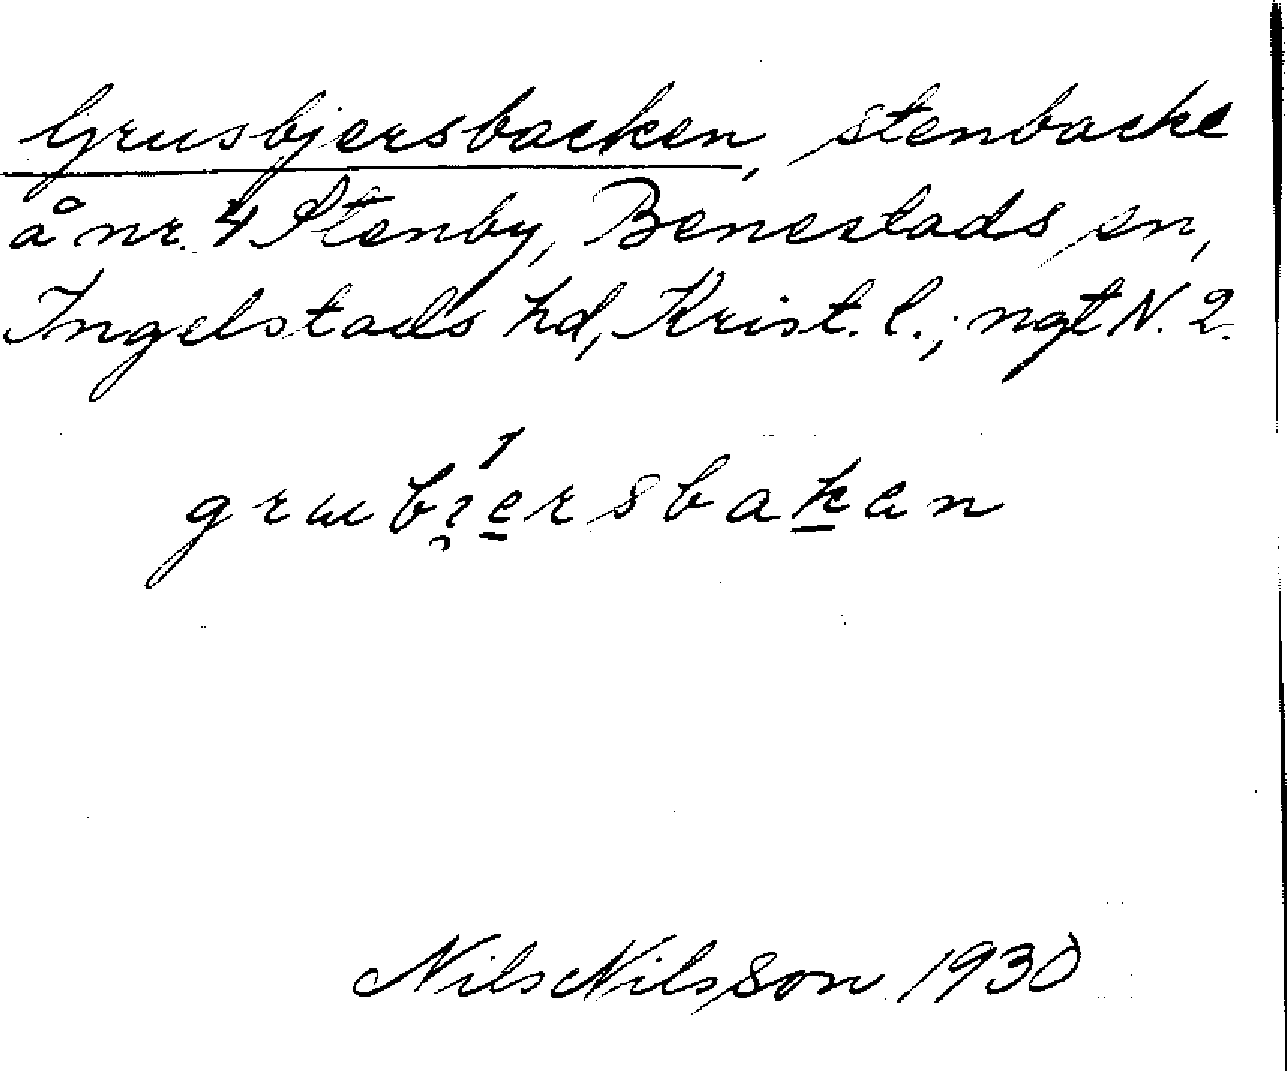 Grusbjersbacken, stenbacke
å nr. 4 Stenby, Benestads sn,
Ingelstads hd, Krist. l.; ngt N. 2.
Nils Nilsson 1930